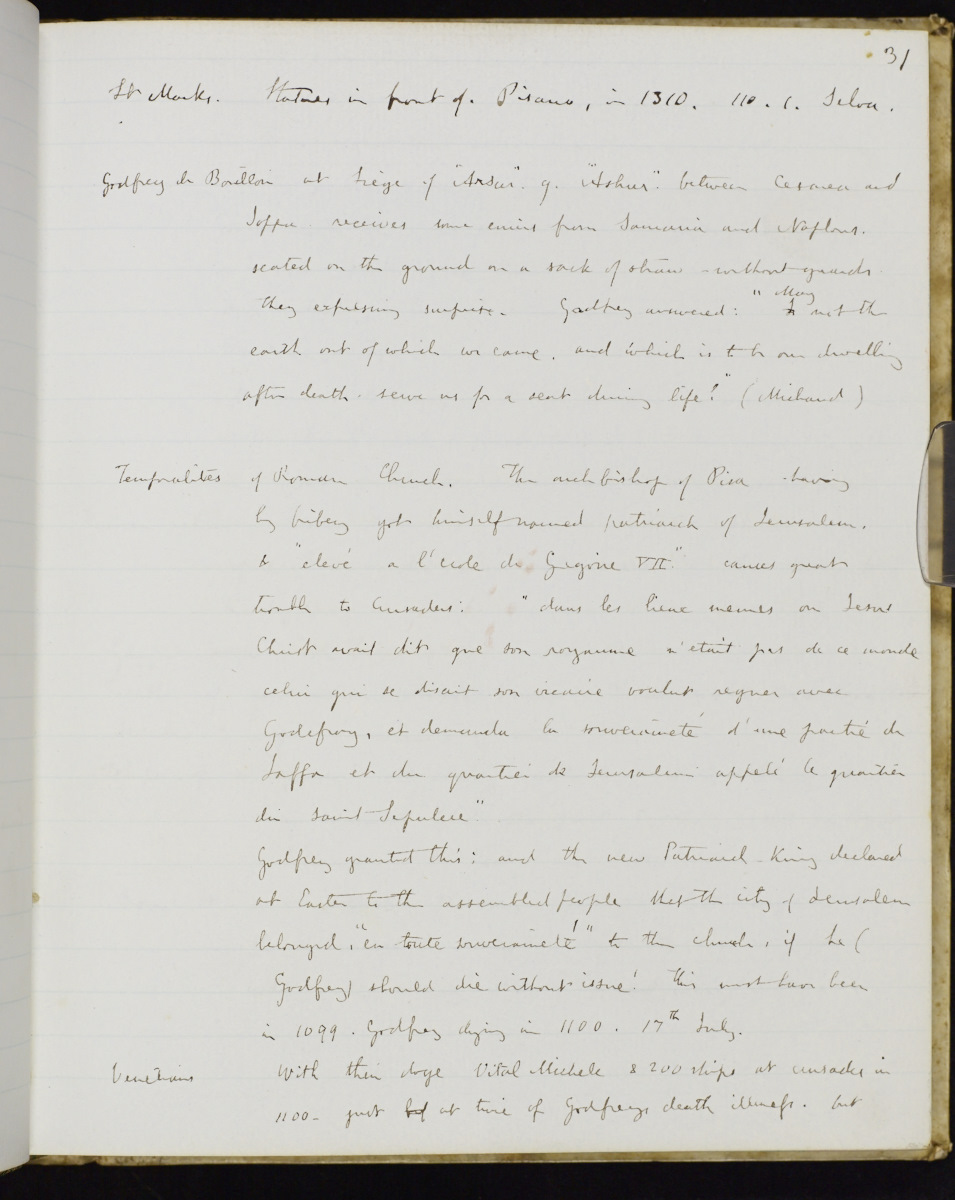 31
St Marks. Statues in front of. Pisano, in 1310. 110. 1. Selva.
Godfrey de Bouillon at siege of "Arsur". q. "Ashur". between Cesarea and
Joppa. receives some emirs from Samaria and Naplous.
seated on the ground on a sack of straw - without guards.
they expressing surprise. Godfrey answered: " May not the
earth out of which we came, and which is to be our dwelling
after death. serve us for a seat during life!" (Michaud)
Temporalities of Roman Church. The archbishop of Pisa having
by bribery got himself named patriarch of Jerusalem.
& "elevé a l'école de Grégoire VII." causes great
trouble to Crusaders: "dans les lieux memes ou Jesus
Christ avait dit que son royaume n'etait pas de ce monde
celui qui se disait son vicaire voulut regner avec
Godefroy, et demanda la souveraineté d'une partie de
Jaffa et du quartier de Jerusalem appelé le quartier
du Saint Sepulcre"
Godfrey granted this: and the new Patriarch-King declared
at Easter to the assembled people that the city of Jerusalem
belonged, "en toute souveraineté!" to the church, if he (
Godfrey) should die without issue! This must have been
in 1099. Godfrey dying in 1100. 17th July.
Venetians With their doge Vital Michele & 200 ships at crusades in
1100- just at time of Godfreys death illness. but